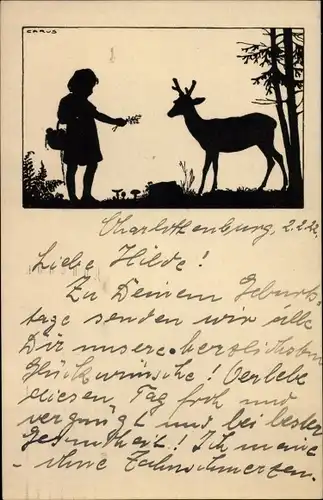 CARUS
Charlottenburg, 2.2.22.
Liebe Hilde!
Zu Deinem Geburts-
tage senden wir alle
Dir unsere herzlichsten
Glückwünsche! Verlebe
diesen Tag froh und
vergnügt und bei bester
Gesundheit! Ich meine
- ohne Zahnschmerzen.